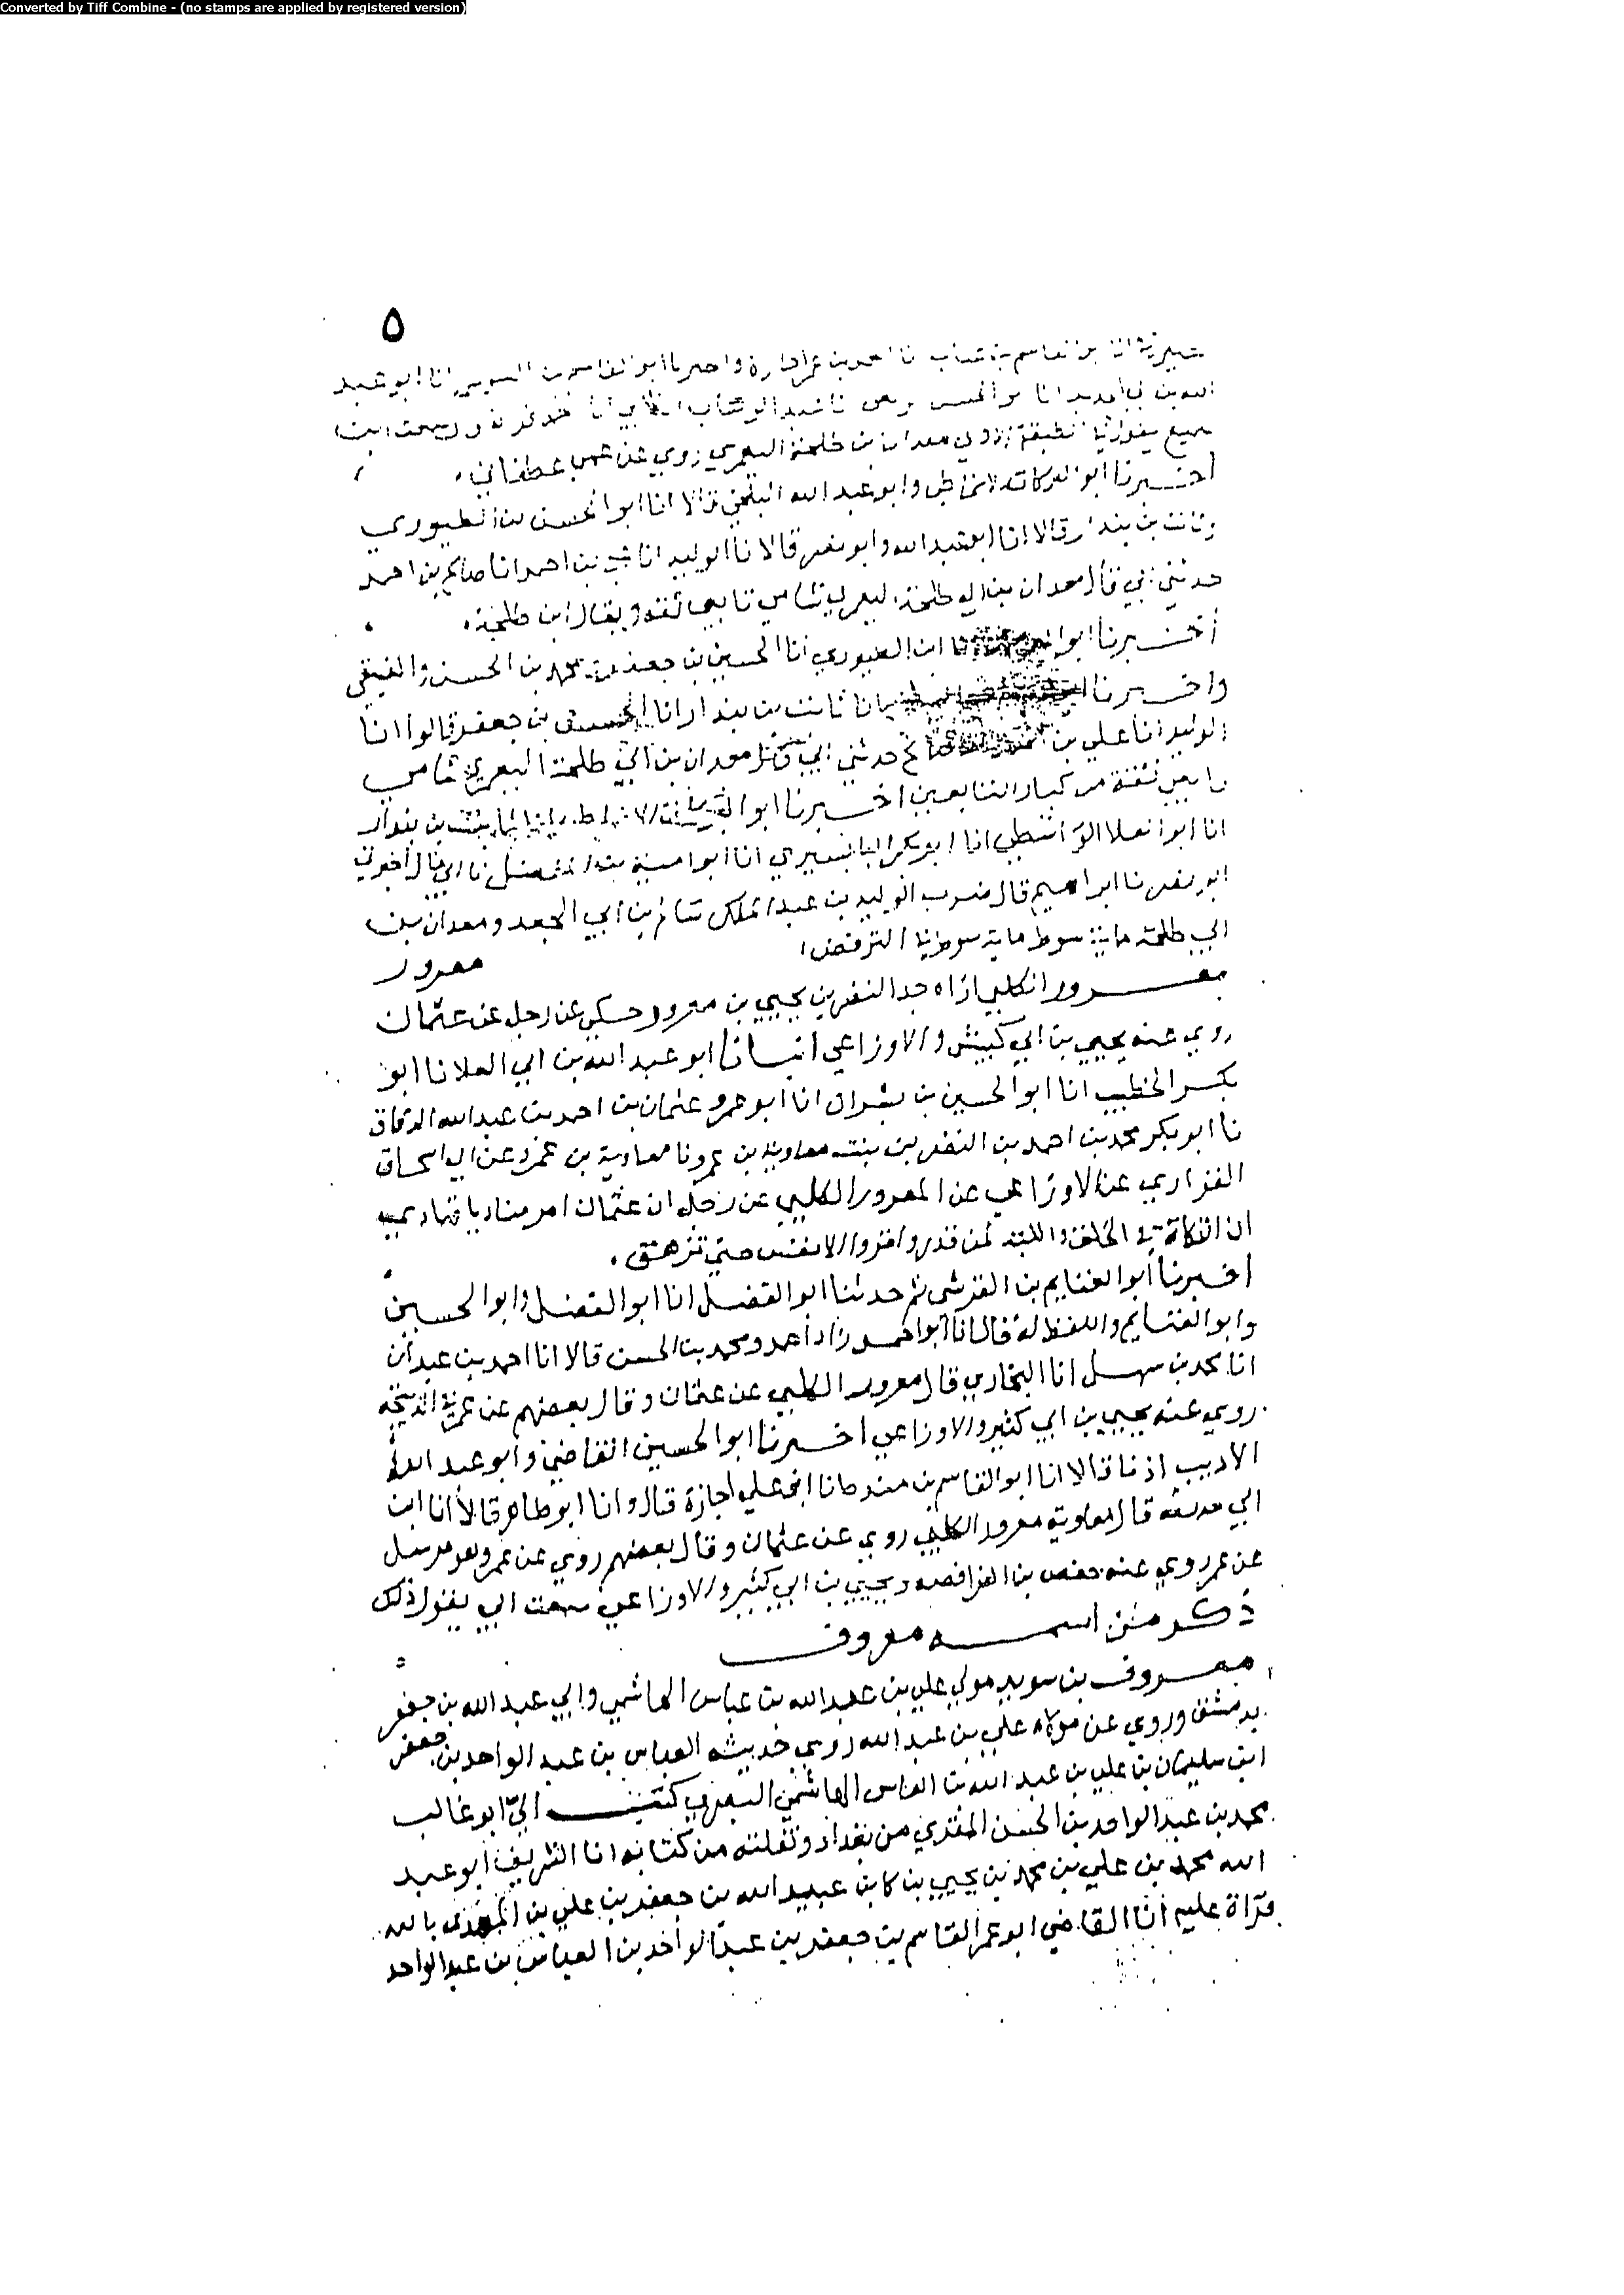 Converted by Tiff Combine - (no stamps are applied by registered version)
٥
انا ابو عبد
معدان بن طلحة اليعمري روي عن عمر غطفاني
اخبرنا ابو البركات الانماطي وابو عبد الله البلخي قالا انا ابو الحسن بن الطيوري
وثابت بن بندار قالا انا ابو عبد الله وابو نصر قالا نا الوليد انا علي بن احمد انا صالح بن احمد
حدثني ابي قال معدان بن ابي طلحة اليعمري شامي تابعي ثقة ويقال ابن طلحة
أخبرنا ابو انا ابن الطيوري انا الحسين بن جعفر محمد بن الحسن والعتيقي
واخبرنا انا ثابت بن بندار انا الحسين بن جعفر قالوا انا
الوليد انا علي بن صالح حدثني ابي قال معدان بن ابي طلحة اليعمري شامي
تابعي ثقة من كبار التابعين اخبرنا ابو البركات الانماطي انا ثابت بن بندار
انا ابو العلا الواسطي انا ابو بكر البابسيري انا ابو امية بن المفضل نا ابي قال اخبرني
ابو نصر نا ابراهيم قال ضرب الوليد بن عبد الملك سالم بن ابي الجعد ومعدان بن
ابي طلحة ماية سوط ماية سوط في الترفض
معرور
معرور الكلبي اراه جد النضر بن يحيي بن معرور حكي عن رجل عن عثمان
روي عنه يحيي بن ابي كثير والاوزاعي انبانا ابو عبد الله بن ابي العلا نا ابو
بكر الخطيب انا ابو الحسين بن بشران انا ابو عمرو عثمان بن احمد بن عبد الله الدقاق
نا ابو بكر محمد بن احمد بن النضر بن بنت معاوية بن عمرو نا معاوية بن عمرو عن ابي اسحاق
الفزاري عن الاوزاعي عن المعرور الكلبي عن رجل ان عثمان امر مناديا فنادي
ان الذكاة في الحلق واللبة لمن قدر واقروا الانفس حتي تزهق
أخبرنا أبو الغنايم بن القرشي ثم حدثنا ابو الفضل انا ابو الفضل وابو الحسين
وابو الغنايم واللفظ له قالوا انا ابو احمد زاد احمد ومحمد بن الحسن قالا انا احمد بن عبدان
انا محمد بن سهل انا البخاري قال معرور الكلبي عن عثمان وقال بعضهم عن عمر في الذبيحة
روي عنه يحيي بن ابي كثير والاوزاعي اخبرنا ابو الحسين القاضي وابو عبد الله
الاديب اذنا قالا انا ابو القاسم بن منده انا ابو علي اجازة قال وانا ابو طاهر قالا انا ابن
ابي قال معاوية معرور الكلبي روي عن عثمان وقال بعضهم روي عن عمر وهو مرسل
عن عمر روي عنه حفص بن الفرافصة ويحيي بن ابي كثير والاوزاعي سمعت ابي يقول ذلك
ذكر من اسمه معروف
معروف بن سويد مولي علي بن عبد الله بن عباس الهاشمي وابي عبد الله بن جعفر
بدمشق وروي عن مولاه علي بن عبد الله روي حديثه العباس بن عبد الواحد بن جعفر
ابن سليمان بن علي بن عبد الله بن العباس الهاشمي البصري كتب الي ابو غالب
محمد بن عبد الواحد بن الحسن من بغداد ونقلته من كتابه انا الشريف أبو عبد
الله محمد بن علي بن محمد بن يحيي بن عبيد الله بن جعفر بن علي بن المهتدي بالله
قراة عليه انا القاضي ابو عمر القاسم بن جعفر بن عبد الواحد بن العباس بن عبد الواحد